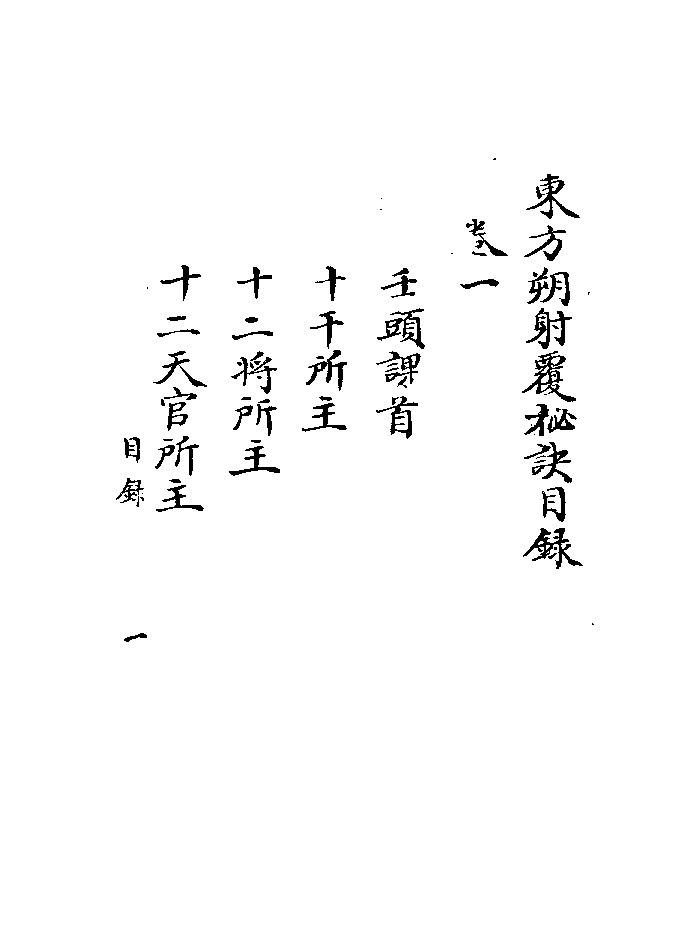 東方朔射覆秘訣目録
卷一
壬頭課首
十干所主
十二将所主
十二天官所主
目録
一